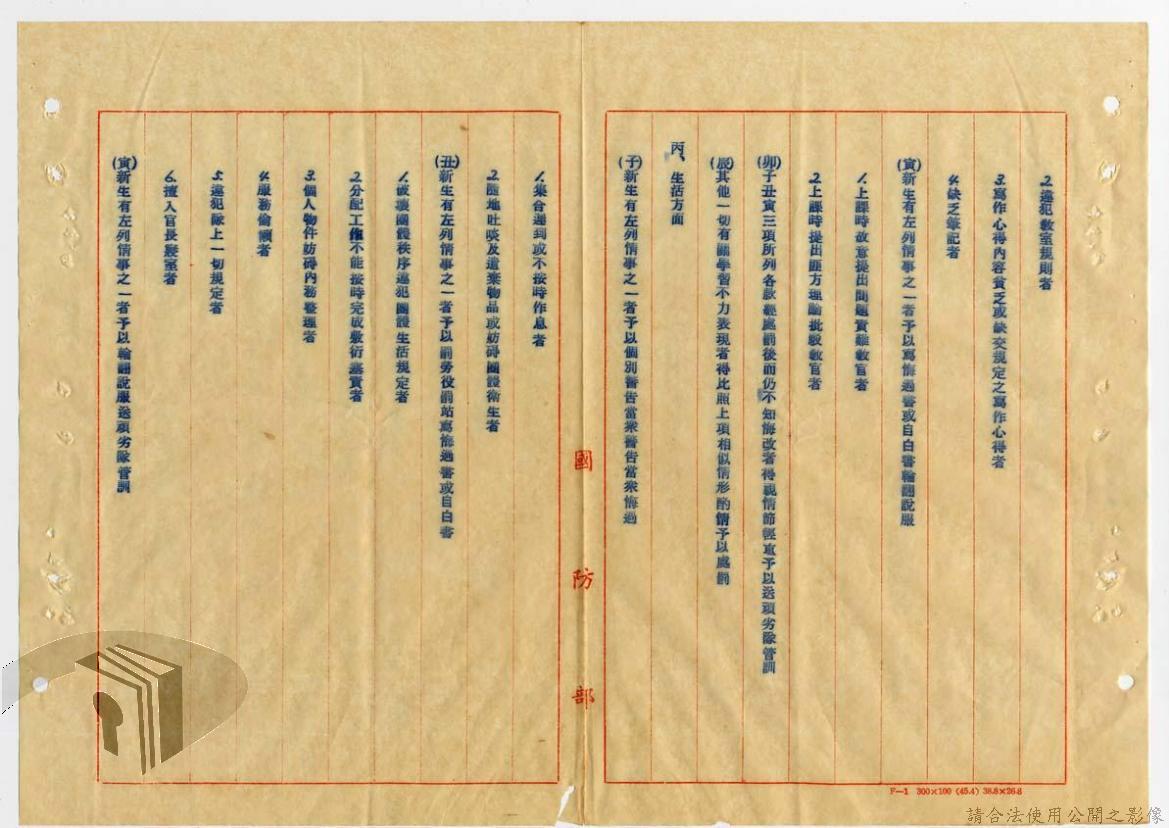 2.違犯教室規則者
3.寫作心得內容貧乏或缺交規定之寫作心得者
4.缺乏筆記者
(寅)新生有左列情事之一者予以寫悔過書或自白書輪翻說服
1.上課時故意提出問題責難教官者
2.上課時提出匪方理論批駁教官者
(卯)子丑寅三項所列各款經處罰後而仍不知悔改者得視情節輕重予以送頑劣隊管訓
(辰)其他一切有關學習不力表現者得比照上項相似情形酌情予以處罰
丙、生活方面
(子)新生有左列情事之一者予以個別警告當衆警告當衆悔過
國防部
1.集合遲到或不按時作息者
2.隨地吐痰及遺棄物品或妨碍團體衛生者
(丑)新生有左列情事之一者予以罰勞役罰站寫悔過書或自白書
1.破壞團體秩序違犯團體生活規定者
2.分配工作不能按時完成敷衍塞責者
3.個人物件妨碍內務整理者
4.服務偷懶者
5.違犯政上一切規定者
6.擅入官長寢室者
(寅)新生有左列情事之一者予以輪翻說服送頑劣隊管訓
F—1 300×100 (45.4) 38.8×26.8
請合法使用公開之影像